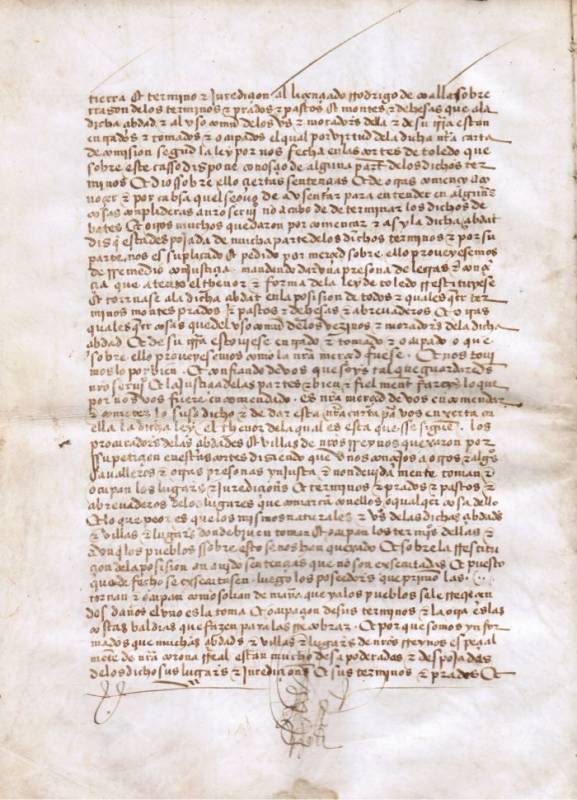 tierra & termino & juredicion al licençiado Rodrigo de coalla sobre
rrason delos terminos & prados & pastos & montes & dehesas que ala
dicha çibdad & al uso comund delos vs & moradores della & de su trra estan
entrados & tomados & ocupados el qual por virtud dela dicha nra carta
de comision segund la ley por nos fecha enlas cortes de toledo que
sobre este casso dispone conosçio de alguna parte delos dichos ter
minos & dio sobre ello çiertas sentençias & de otras començo a co
noçer & por cabsa quel se ovo de absentar para entender en algunas
cosas conplideras a nro serviçio no acabo de determinar los dichos de
bates & otros muchos quedaron por començar & asy la dicha çibdat
dis que esta despojada de mucha parte delos dichos terminos & por su
parte nos es suplicado & pedido por merçed sobre ello proveyesemos
de rremedio con justiçia mandando dar una presona de letras & conçiençia
que atento el thenor & forma dela ley de toledo rrestituyese
& tornase ala dicha çibdat enla posision de todos & qualesquier ter
minos montes prados & pastos & dehesas & abrevaderos & otras
qualesquier cosas que del uso comund delos vezinos & moradores dela dicha
çibdad & de su trra estoviese entrado & tomado & ocupado o que
sobre ello proveyesemos como la nra merçed fuese & nos tovi
mos lo por bien & confiando de vos que soys tal que guardaredes
nro serviçio & la justiçia delas partes & bien & fiel mente fareys lo que
por nos vos fuere encomendado es nra merçed de vos encomendar
& cometer lo suso dicho & de dar esta nra carta para vos enxerta en
ella la dicha ley el thenor dela qual es esta que se sigue los
procuradores delas çibdades & villas de nros rreynos quexaron por
su petiçion en estas cortes disiendo que unos conçejos a otros & algunos
cavalleros & otras presonas ynjusta & non devida mente toman &
ocupan los lugares & jurediçiones & terminos & prados & pastos &
abrevaderos delos lugares que comarcan con ellos o qualquier cosa dello
& lo que peor es que los mismos naturales & vs delas dichas çibdades
& villas & lugares donde biven toman & ocupan los terminos dellas &
avnque los pueblos sobre esto se nos han quexado & sobre la rrestitu
çion dela posision han avido sentençias que no son exsecutadas & puesto
que de fecho se exsecutasen luego los poseedores que primo las
tornan & ocupan como solian de manera que alos pueblos se le rrecreçen
dos daños el uno es la toma & ocupaçion de sus terminos & la otra es las
costas valdias que fazen para las rrecobrar & por que somos ynfor
mados que muchas çibdades & villas & lugares de nros rreynos espeçial
mente de nra corona rreal estan mucho desapoderadas & despojadas
delos dichos sus lugares & juredicions & sus terminos & prados &